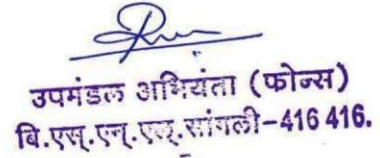 उपमंडल अभियंता (फोन्स)
बि.एस्.एन्.एल्.सांगली-416 416.